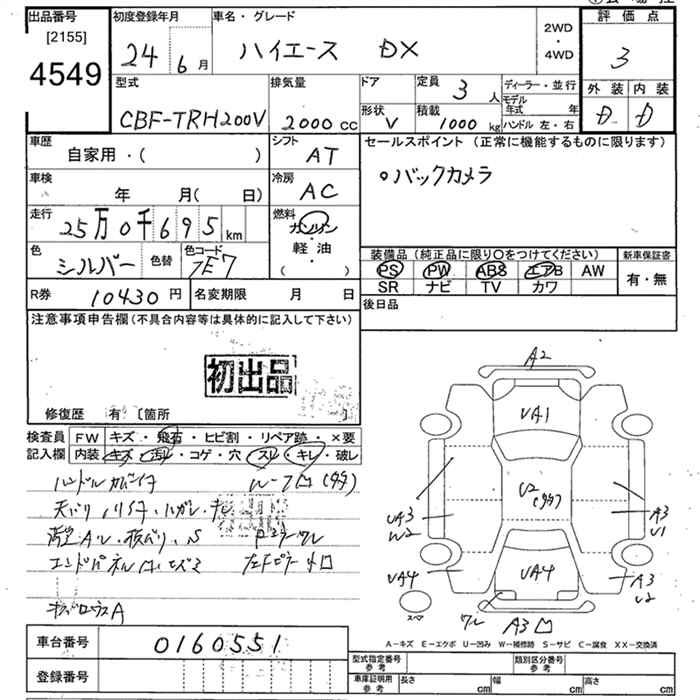 出品番号
[2155]
4549
初度登録年月
24 6 月
車名・グレード
ハイエース DX
2WD
・
4WD
評価点
3
型式
CBF-TRH200V
排気量
2000 cc
ドア
形状
V
定員
3 人
積載
1000 kg
ディーラー・並行
モデル年式 年
ハンドル 左・右
外装 内装
D D
車歴
自家用・( )
シフト
AT
セールスポイント (正常に機能するものに限ります)
○バックカメラ
車検
年 月( 日)
冷房
AC
走行
25万0千695 km
燃料
ガソリン
・
軽油
・
( )
色
シルバー
色替
色コード
1E7
装備品 (純正品に限り○をつけてください)
新車保証書
PS PW ABS エアB AW
SR ナビ TV カワ
有・無
R券
10430 円
名変期限 月 日
後日品
注意事項申告欄 (不具合内容等は具体的に記入して下さい)
初出品
修復歴 有 〔箇所 〕
検査員
記入欄
FW キズ・飛石・ヒビ割・リペア跡・×要
内装 キズ・汚れ・コゲ・穴・スレ・キレ・破レ
A2
UA1
U2
(多多)
UA3
W2
A3
U1
UA4
UA4
A3
U2
スペア
ワレ
A3
A-キズ E-エクボ U-凹み W-補修跡 S-サビ C-腐食 XX-交換済
車台番号
0160551
登録番号
型式指定番号
参考
類別区分番号
参考
車庫証明用
参考
長さ cm 幅 cm 高さ cm